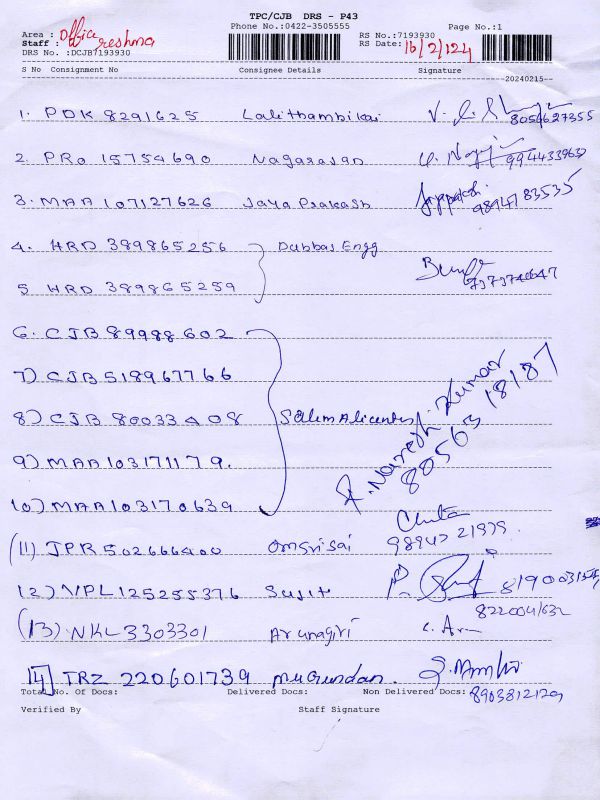 TPC/CJB DRS - P43
Phone No.:0422-3505555 Page No.:1
Area : Office
Staff : Reshma
DRS No. :DCJB7193930
RS No.:7193930
RS Date: 16/2/124
S No Consignment No Consignee Details Signature
20240215
1. PDK 8291625 Lalithambikai 8056627355
2. PRO 15754690 Nagarasan 9944433963
3. MAA 107127626 Jaya Prakash Jayaprakash 9894783535
4. HRD 389865256 Dubbas Engg
5 HRD 389865259 7373740647
6. CJB 89988602
7) CJB 518967766
8) CJB 80033408 Salim Ali centre R. Naresh Kumar 80563 18187
9) MAA 103171179.
10) MAA 103170639
(11) JPR 502666400 Omsrisai 98947 21979
12) VPL 125255376 Sujit 8190031549
8220041632
(13) NKL 3303301 Arunagiri
14 TRZ 220601739 Mugundan. 8903812129
Total No. Of Docs: Delivered Docs: Non Delivered Docs:
Verified By Staff Signature